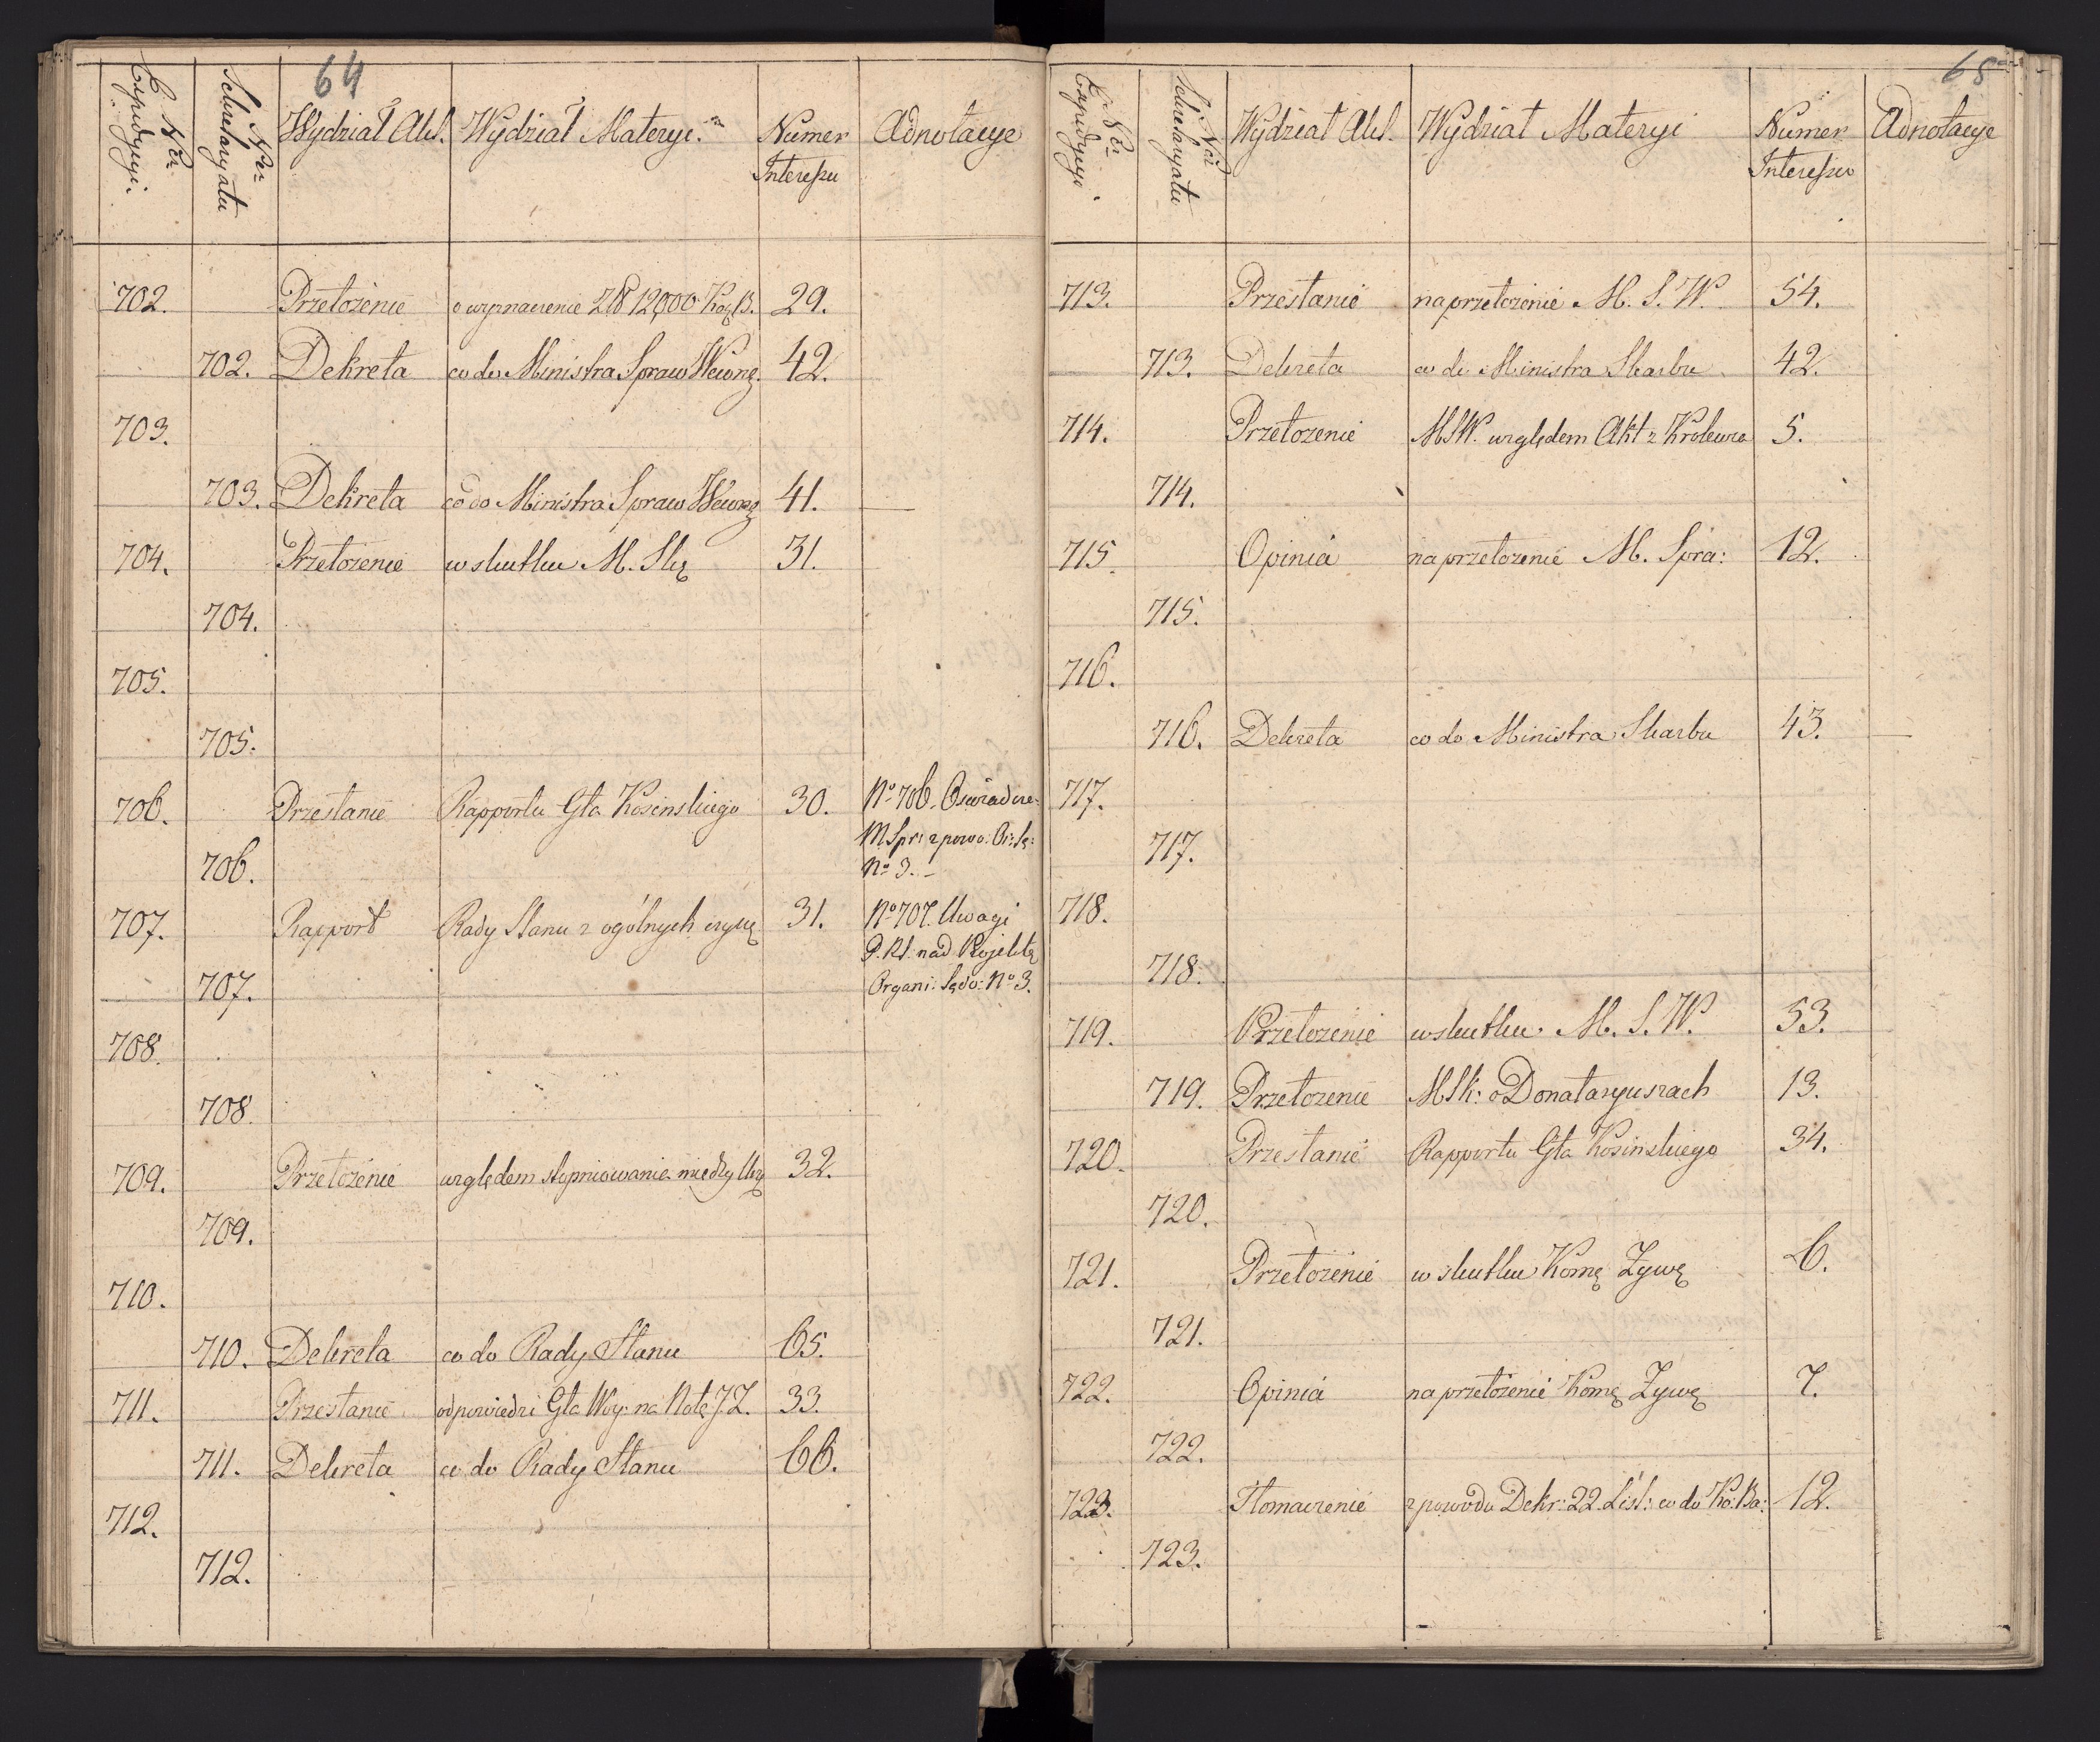 64
Nr Expedycyi.
Nr Sekretaryatu
Wydział Akt.
Wydział Materyi.
Numer Interessu
Adnotacye
702. Przełożenie o wyznaczenie Zł 12,000 29.
702. Dekreta co do Ministra Spraw Wewnę. 42.
703.
703. Dekreta co do Ministra Spraw Wewnę 41.
704. Przełożenie w skutku M. Skę 31.
704.
705.
705.
706. Przesłanie Rapportu Gła Kosinskiego 30. No 706. Oswiadcze:
M Spr: z powo: Or: Sę:
706. No 3.
707. Rapport Rady Stanu z ogólnych czynę 31. No 707. Uwagi
P. Rl. nad Projektę
707. Organi: Sędo: No 3.
708.
708.
709. Przełożenie względem stopniowania między Urzę 32.
709.
710.
710. Dekreta co do Rady Stanu 65.
711. Przesłanie odpowiedzi Gła Woy: na Notę J.Z. 33.
711. Dekreta co do Rady Stanu 66.
712.
712.
65
Nr Expedycyi.
Nr Sekretaryatu
Wydział Akt.
Wydział Materyi
Numer Interessu
Adnotacye
713. Przesłanie na przełożenie M. S. W. 54.
713. Dekreta co do Ministra Skarbu 42.
714. Przełożenie MSW. względem Akt z Krolewca 5.
714.
715. Opinia na przełożenie M. Spra: 12.
715.
716.
716. Dekreta co do Ministra Skarbu 43.
717.
717.
718.
718.
719. Przełożenie w skutku M. S. W. 53.
719. Przełożenie MSk: o Donataryuszach 13.
720. Przesłanie Rapportu Gła Kosinskiego 34.
720.
721. Przełożenie w skutku Komę Zywę 6.
721.
722. Opinia na przełożenie Komę Zywę 7.
722.
723. Tłomaczenie z powodu Dekr: 22. List: co do Ko: Ba: 12.
723.